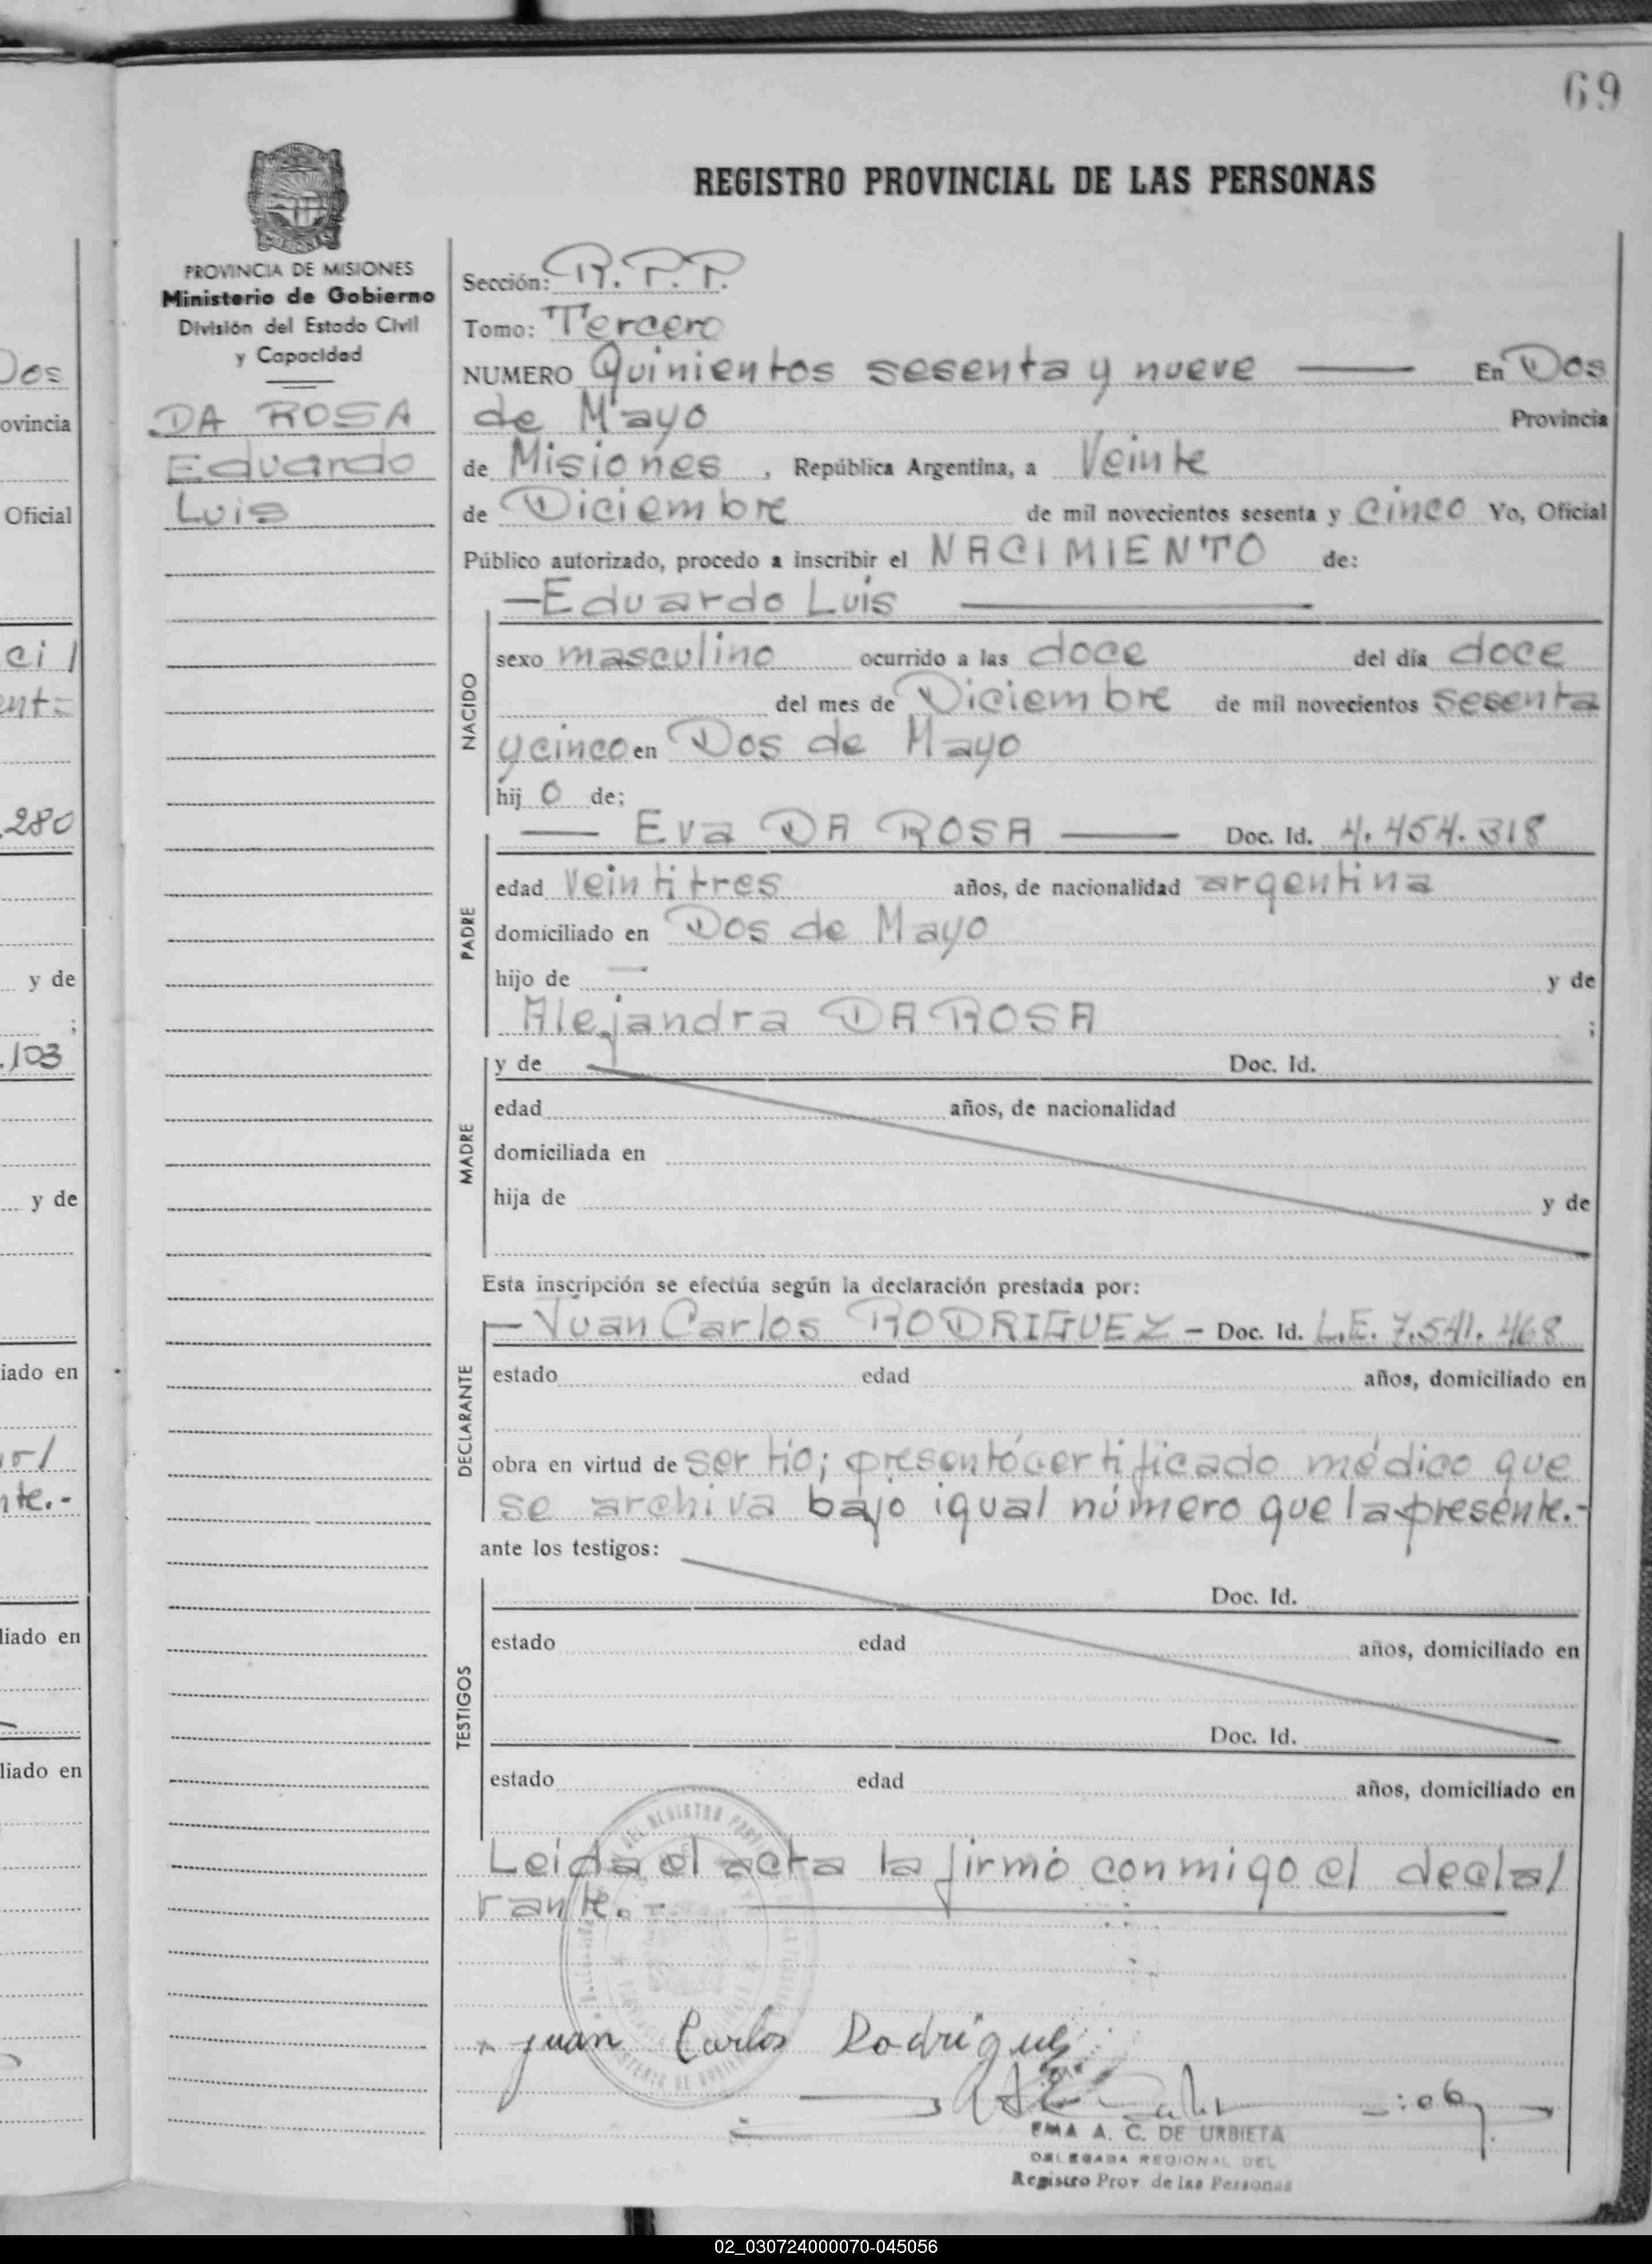 69
REGISTRO PROVINCIAL DE LAS PERSONAS
PROVINCIA DE MISIONES
Ministerio de Gobierno
División del Estado Civil
y Capacidad
DA ROSA
Eduardo
Luis
Sección: R.P.P.
Tomo: Tercero
NUMERO Quinientos sesenta y nueve — En Dos
de Mayo Provincia
de Misiones, República Argentina, a Veinte
de Diciembre de mil novecientos sesenta y cinco Yo, Oficial
Público autorizado, procedo a inscribir el NACIMIENTO de:
— Eduardo Luis —
NACIDO
sexo masculino ocurrido a las doce del día doce
del mes de Diciembre de mil novecientos sesenta
y cinco en Dos de Mayo
hij o de;
— Eva DA ROSA — Doc. Id. 4.454.318
PADRE
edad veintitres años, de nacionalidad argentina
domiciliado en Dos de Mayo
hijo de — y de
Alejandra DA ROSA ;
MADRE
y de Doc. Id.
edad años, de nacionalidad
domiciliada en
hija de y de
Esta inscripción se efectúa según la declaración prestada por:
— Juan Carlos RODRIGUEZ — Doc. Id. L.E. 7.541.468
DECLARANTE
estado edad años, domiciliado en
obra en virtud de ser tío; presentó certificado médico que
se archiva bajo igual número que la presente.-
ante los testigos:
TESTIGOS
Doc. Id.
estado edad años, domiciliado en
Doc. Id.
estado edad años, domiciliado en
Leída el acta la firmó conmigo el decla/
rante. -
Juan Carlos Rodriguez
EMA A. C. DE URBIETA
DELEGADA REGIONAL DEL
Registro Prov. de las Personas
Dos
ovincia
Oficial
280
y de
;
.103
y de
iado en
nte.-
liado en
liado en
02_030724000070-045056